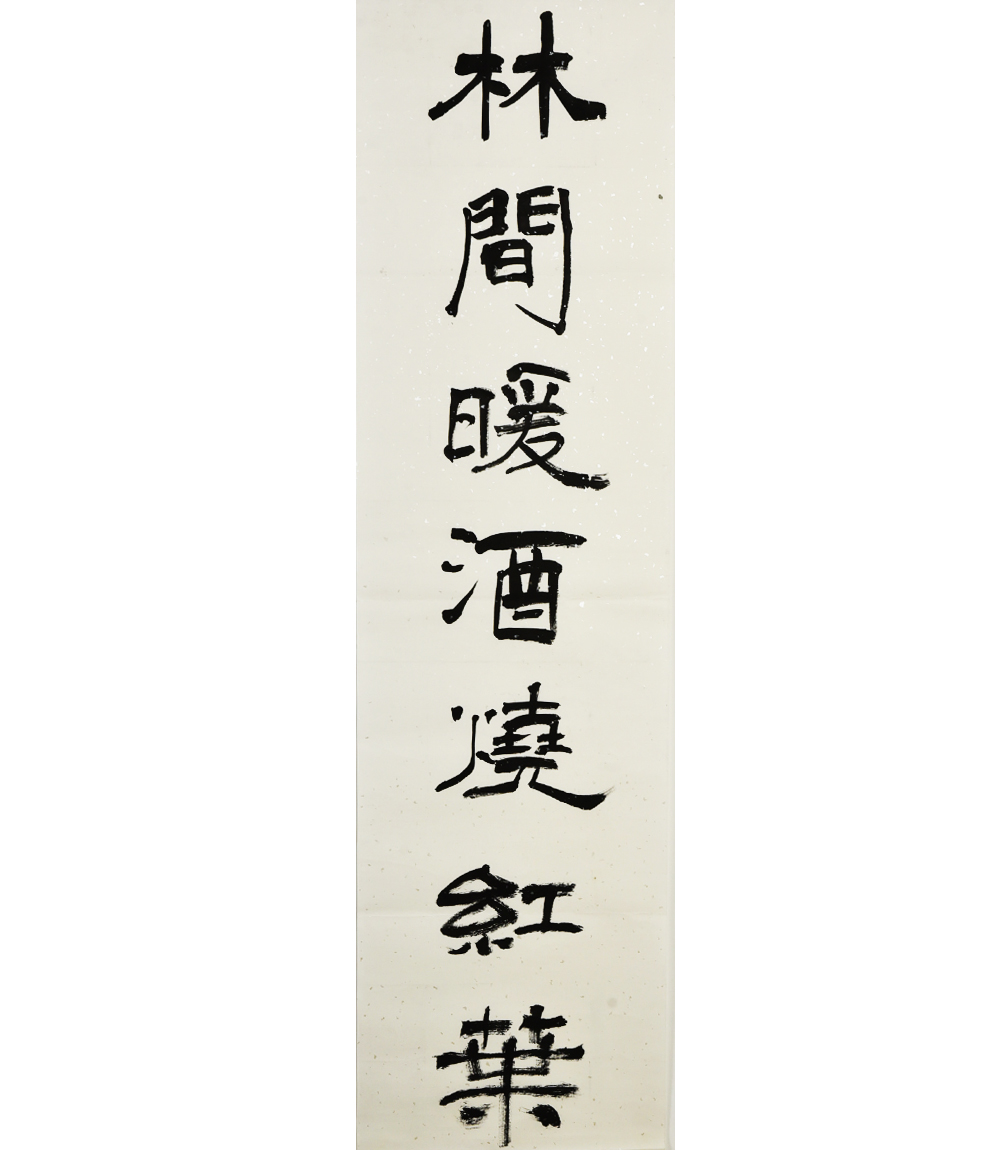 林間暖酒燒紅葉